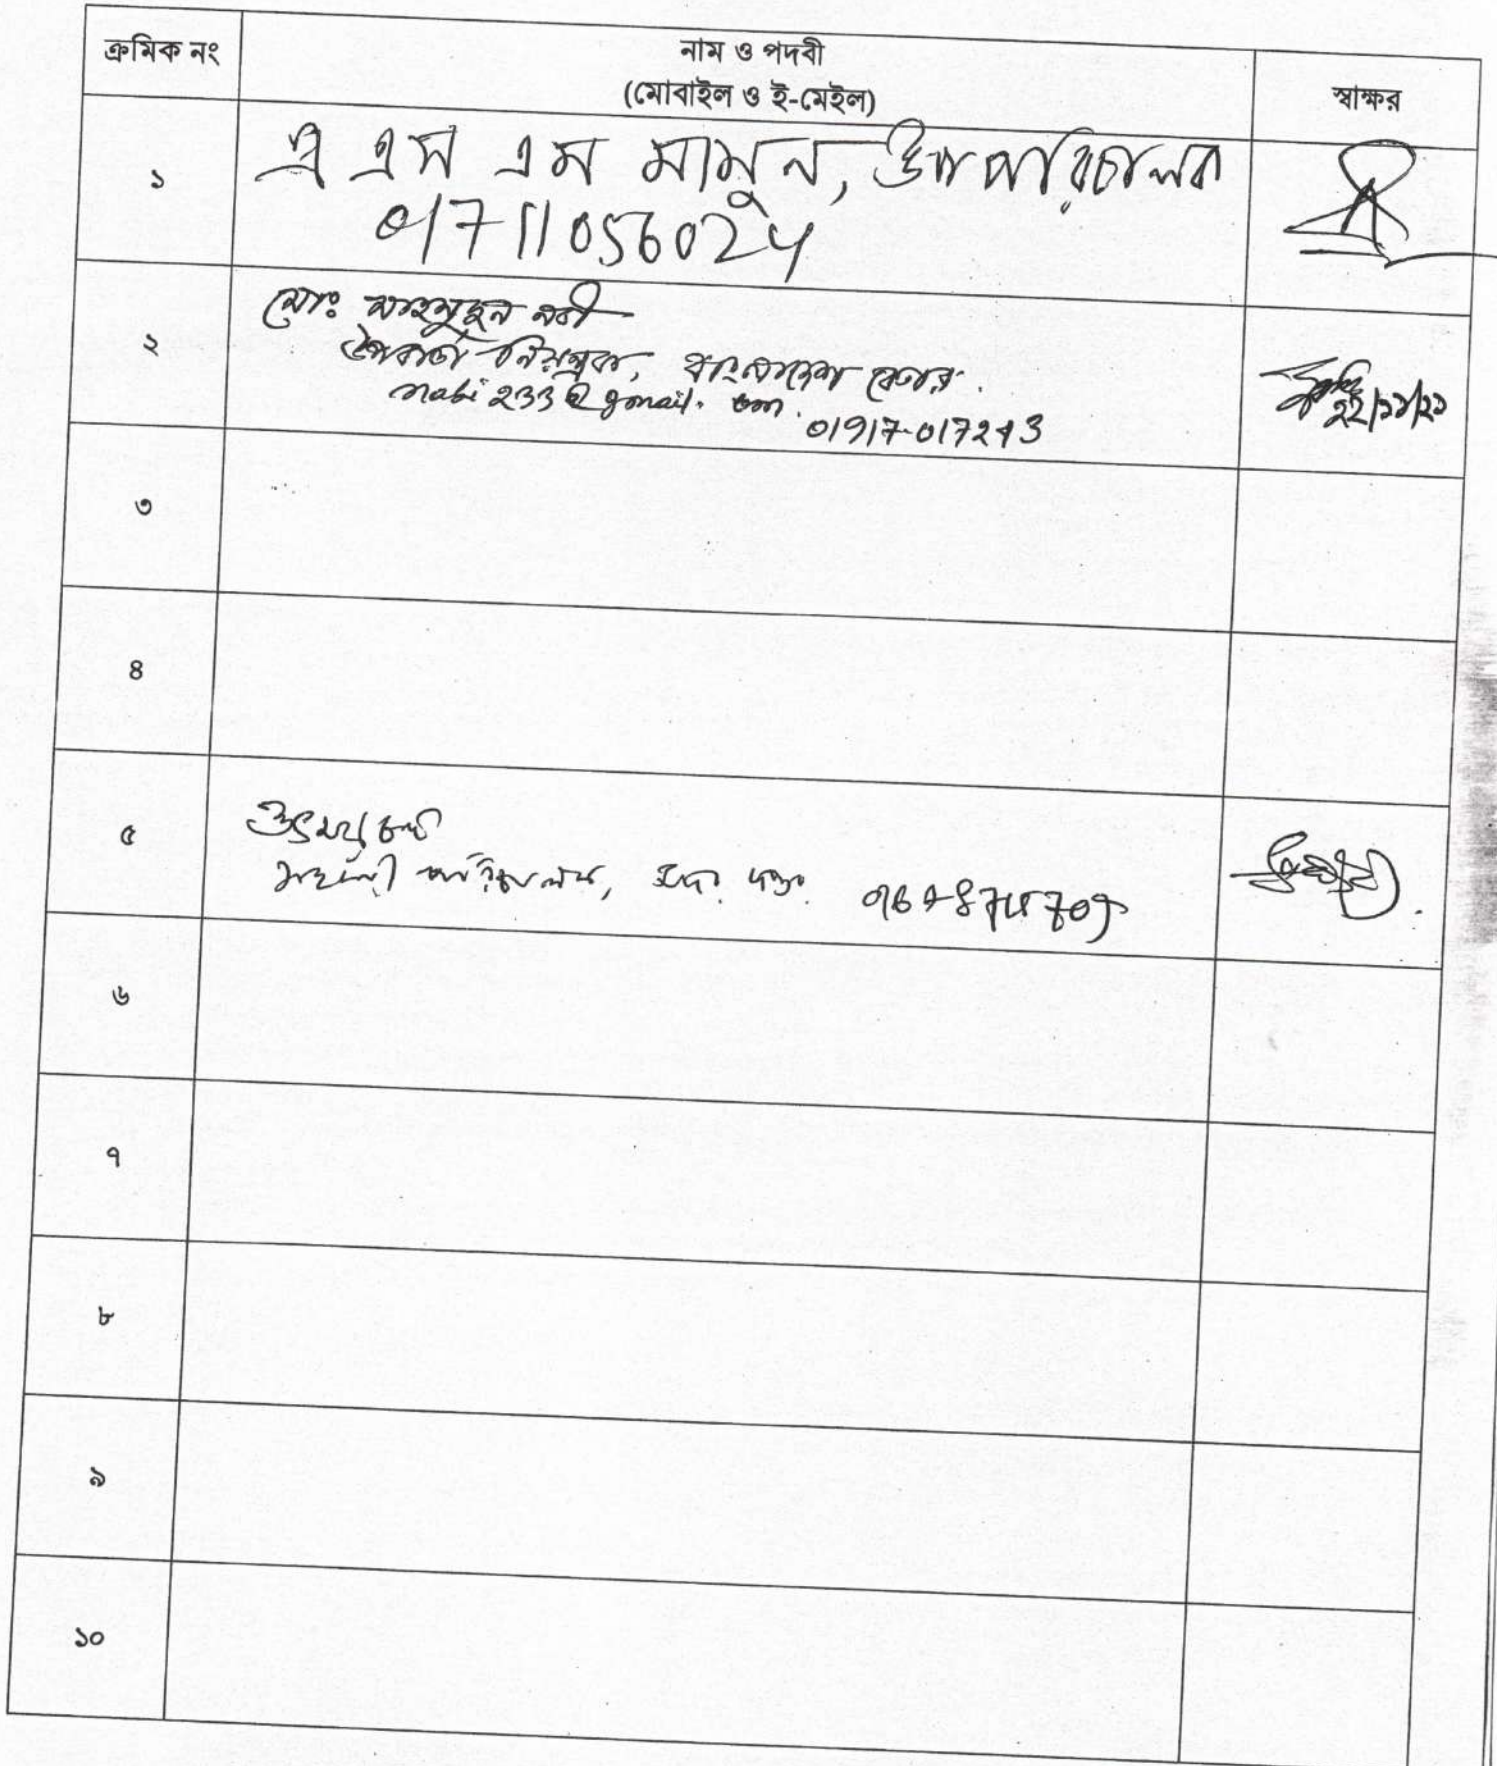 ক্রমিক নং
নাম ও পদবী
(মোবাইল ও ই-মেইল)
স্বাক্ষর
১
এ এস এম মামুন, উপপরিচালক
01711056024
২
মোঃ মাহমুদুন নবী
উপবার্তা নিয়ন্ত্রক, বাংলাদেশ বেতার.
nabi 233@gmail.com.
01917-017243
২২/১১/২১
৩
৪
৫
৬
৭
৮
৯
১০